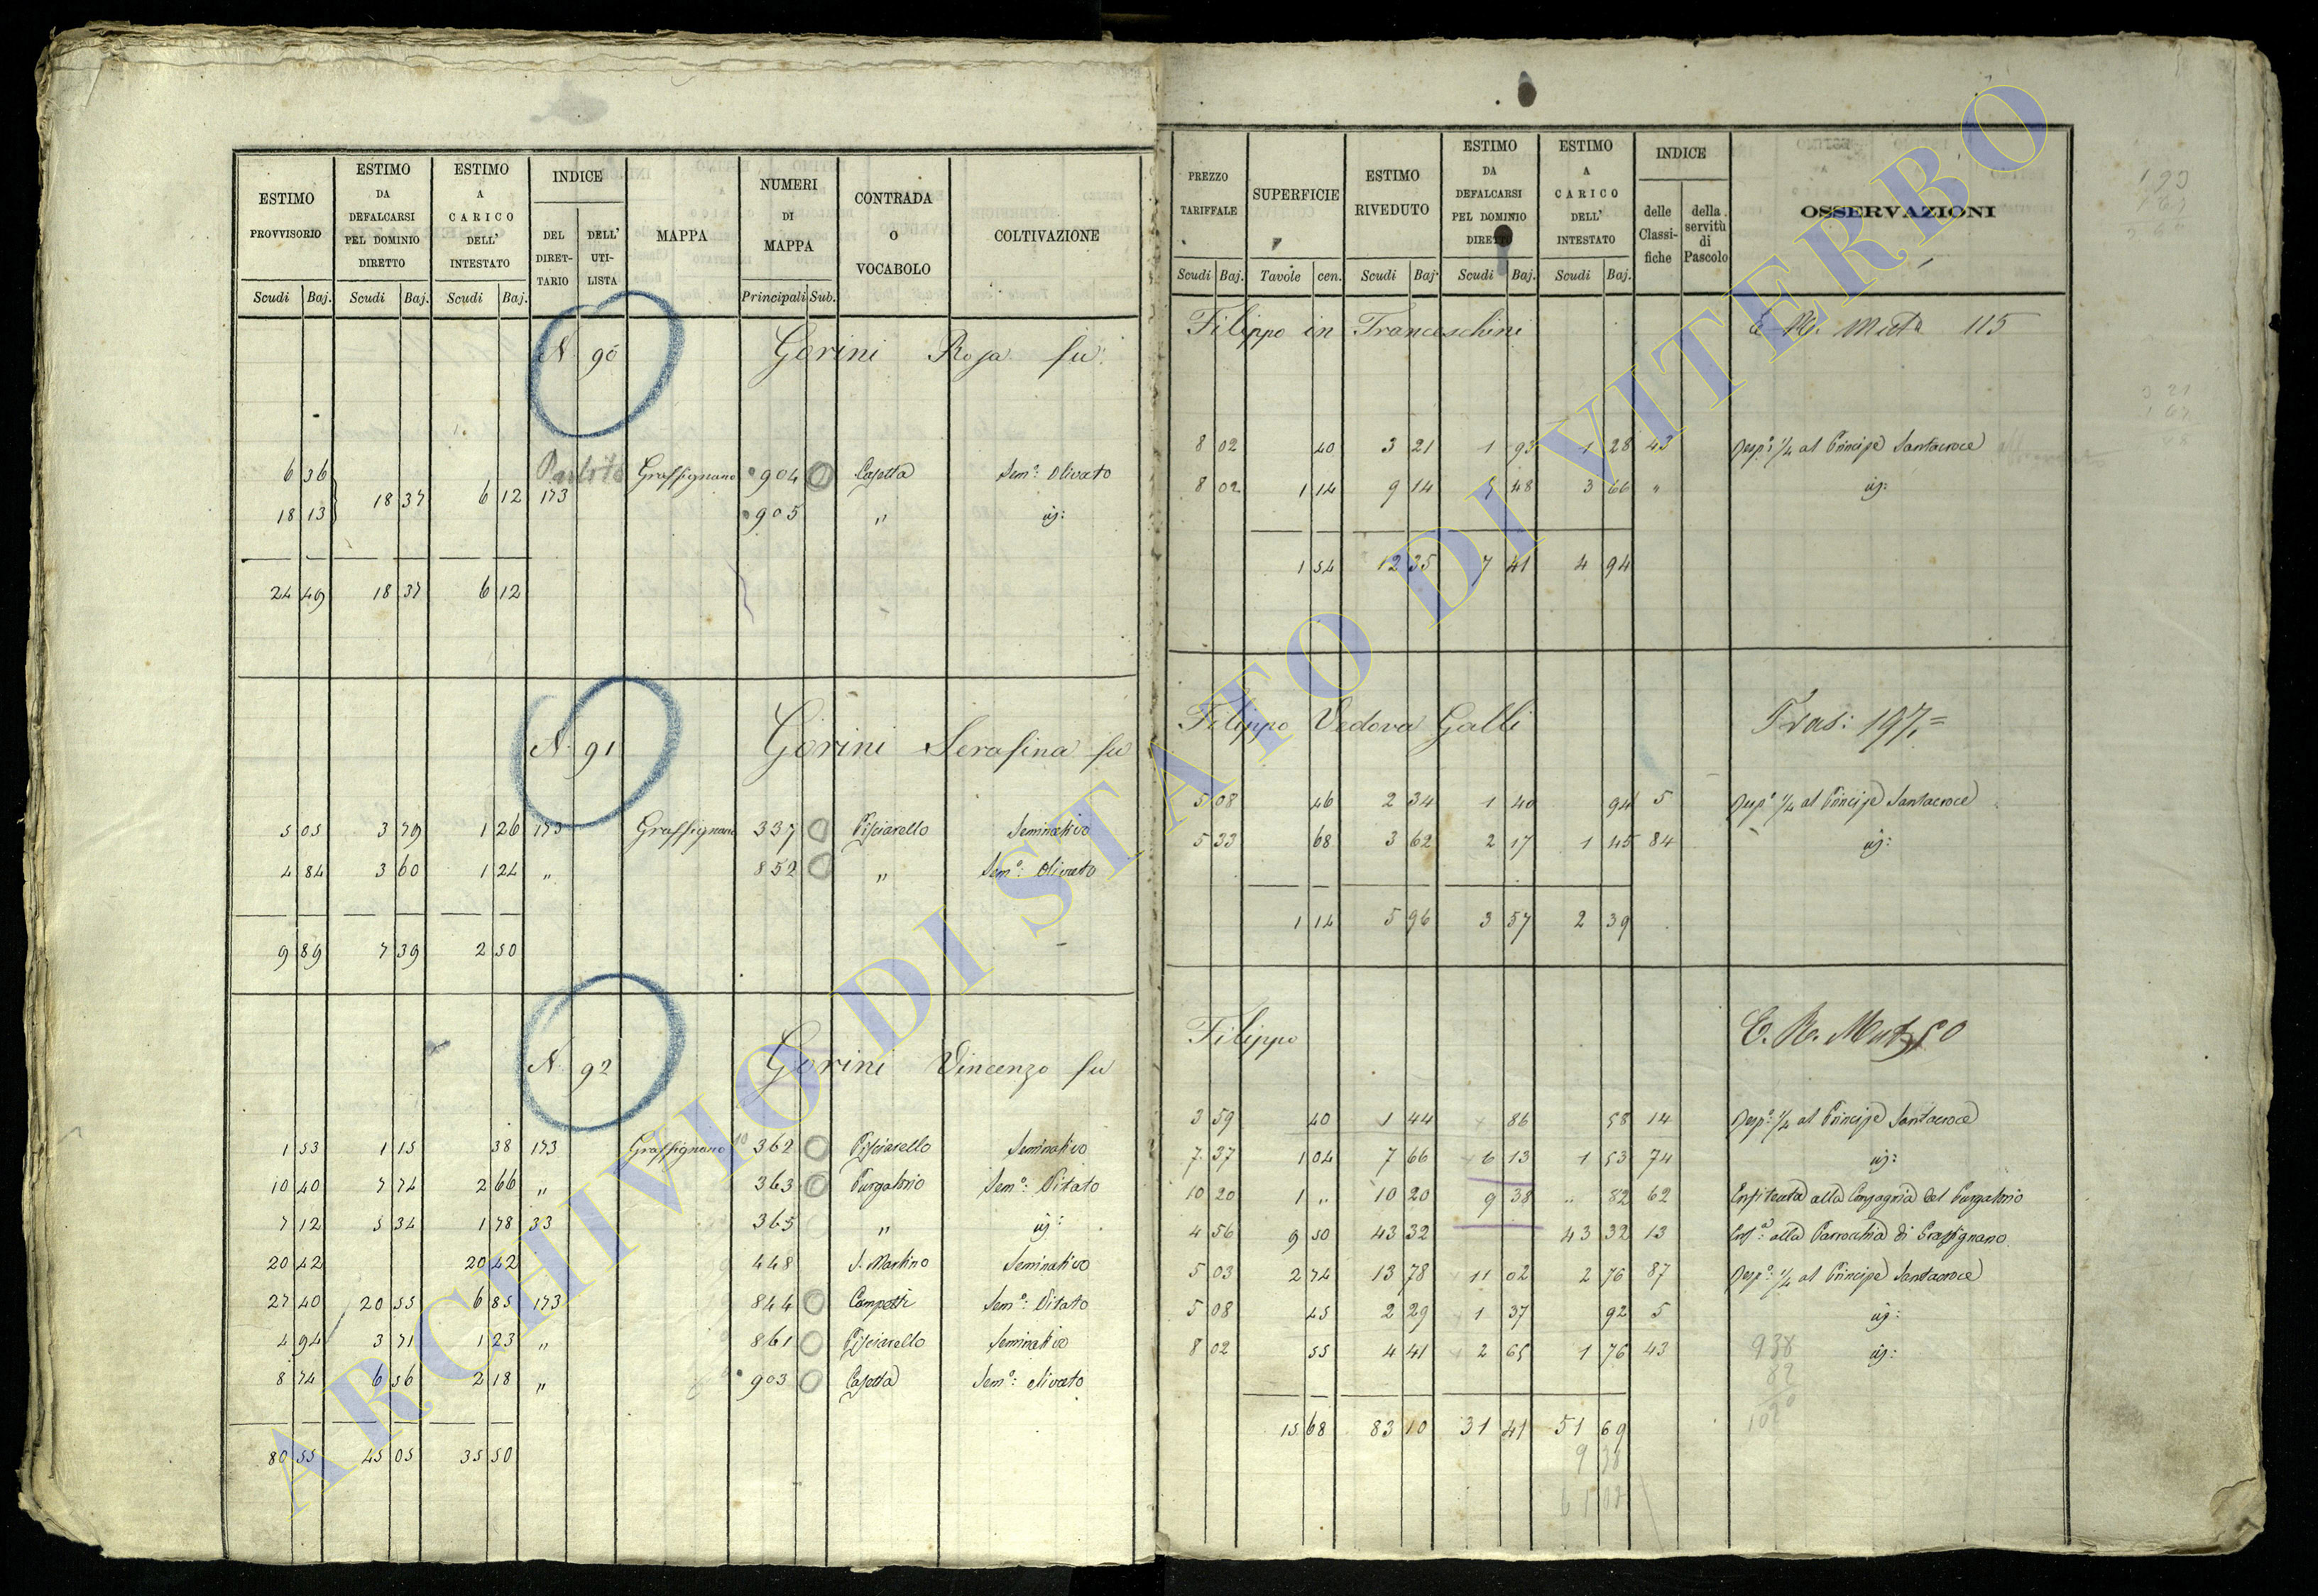 ESTIMO PROVVISORIO | ESTIMO DA DEFALCARSI PEL DOMINIO DIRETTO | ESTIMO A CARICO DELL' INTESTATO | INDICE DEL DIRET-TARIO | DELL' UTI-LISTA | MAPPA | NUMERI DI MAPPA | CONTRADA O VOCABOLO | COLTIVAZIONE
Scudi Baj. | Scudi Baj. | Scudi Baj. | Principali Sub.
N 90 Gorini Rosa fu
6 36 Graffignano 904 Casetta Sem.º Olivato
18 37 6 12 173
18 13 905 " id:
24 49 18 37 6 12
N. 91 Gorini Serafina fu
5 05 3 79 1 26 173 Graffignano 337 Pisciarello Seminativo
4 84 3 60 1 24 " 852 " Sem.º: Olivato
9 89 7 39 2 50
N. 92 Gorini Vincenzo fu
1 53 1 15 38 173 Graffignano 362 Pisciarello Seminativo
10 40 7 74 2 66 " 363 Purgatorio Sem.º: Vitato
7 12 5 34 1 78 33 365 " id:
20 42 20 42 448 S. Martino Seminativo
27 40 20 55 6 85 173 844 Campetti Sem.º: Vitato
4 94 3 71 1 23 " 861 Pisciarello Seminativo
8 74 6 56 2 18 " 903 Casetta Sem.º: olivato
80 55 45 05 35 50
PREZZO TARIFFALE | SUPERFICIE | ESTIMO RIVEDUTO | ESTIMO DA DEFALCARSI PEL DOMINIO DIRETTO | ESTIMO A CARICO DELL' INTESTATO | INDICE delle Classi-fiche | della servitù di Pascolo | OSSERVAZIONI
Scudi Baj. | Tavole cen. | Scudi Baj. | Scudi Baj. | Scudi Baj.
Filippo in Franceschini 115
8 02 40 3 21 1 93 1 28 43 Risp.ª ¼ al Principe Santacroce
8 02 1 14 9 14 5 48 3 66 " id:
1 54 12 35 7 41 4 94
Filippo Vedova Galli Tras: 197
5 08 46 2 34 1 40 94 5 Risp.ª ¼ al Principe Santacroce
5 33 68 3 62 2 17 1 45 84 id:
1 14 5 96 3 57 2 39
Filippo
3 59 40 1 44 86 58 14 Risp.ª: ¼ al Principe Santacroce
7 37 1 04 7 66 6 13 1 53 74 id:
10 20 1 " 10 20 9 38 " 82 62 Enfiteuta alla Compagnia del Purgatorio
4 56 9 50 43 32 43 32 13 Enf.ª: alla Parrocchia di Graffignano
5 03 2 74 13 78 11 02 2 76 87 Risp.ª: ¼ al Principe Santacroce
5 08 45 2 29 1 37 92 5 id:
8 02 55 4 41 2 65 1 76 43 id:
938
82
1020
15 68 83 10 31 41 51 69
9 38
61 07
ARCHIVIO DI STATO DI VITERBO